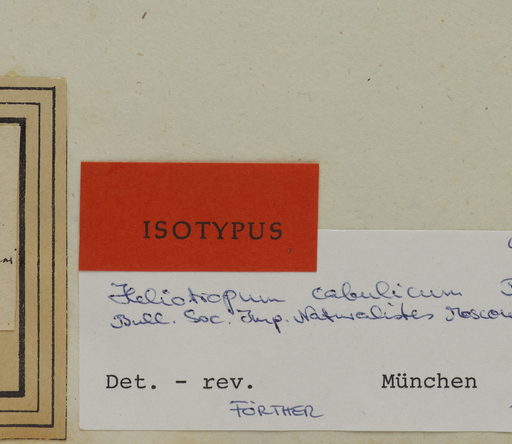 ISOTYPUS
Heliotropum cabulicum
Bull. Soc. Imp. Naturalistes Moscou
Det. - rev. München
FÖRTHER